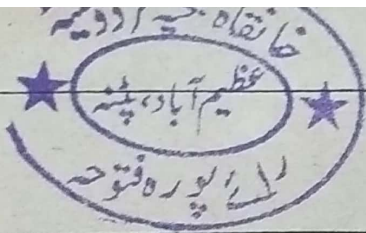 خانقاہ
عظیم آباد، پٹنہ
رائے پورہ فتوحہ